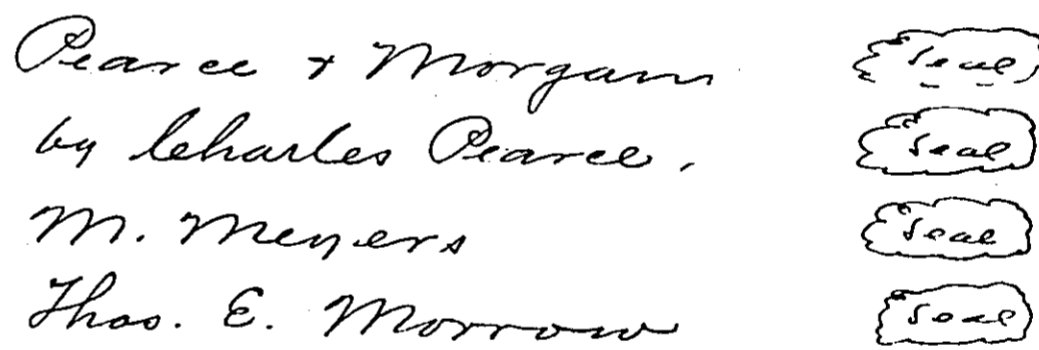 Pearce + Morgan Seal
by Charles Pearce, Seal
M. Meyers Seal
Thos. E. Morrow Seal